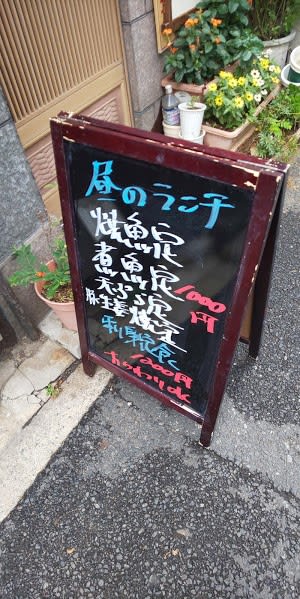 昼のランチ
焼魚定
煮魚定
天ぷら定
豚生姜焼定
1000円
刺身定食
1200円
おかわりok